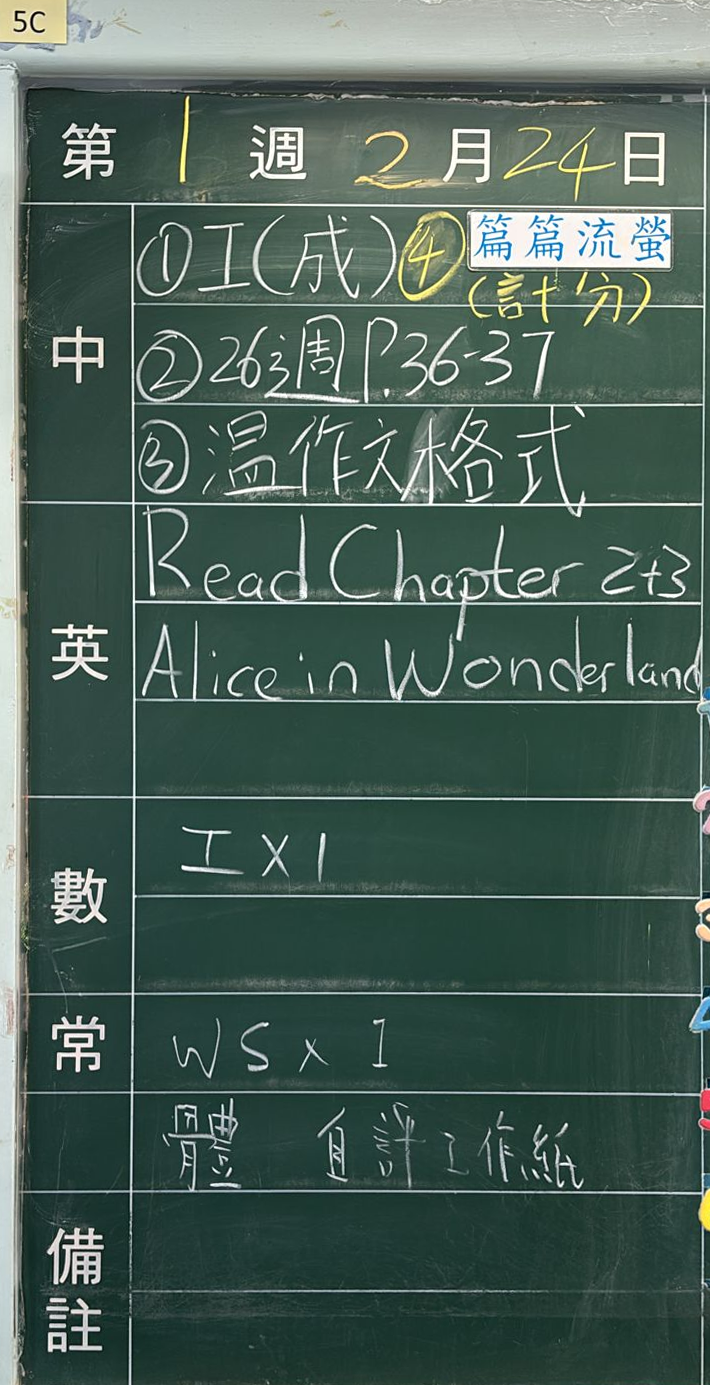 5C
第 1 週 2 月 24 日
中
①工(成) ④ 篇篇流螢
(計分)
②26週 P.36-37
③温作文格式
英
Read Chapter 2+3
Alice in Wonderland
數
工 X 1
常
WS x 1
體 自評工作紙
備註